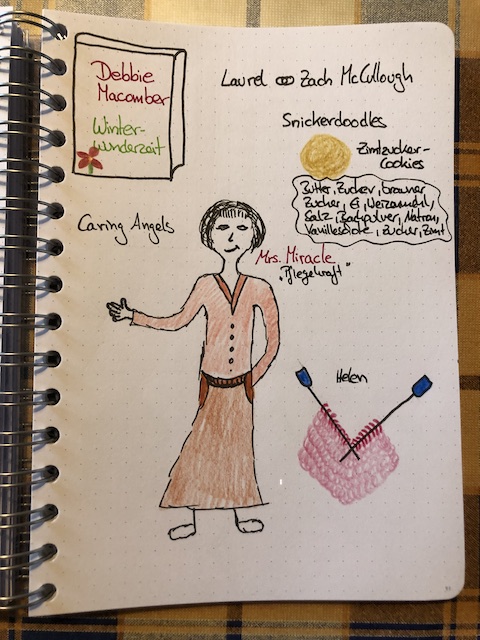 Debbie
Macomber
Winter-
wunderzeit
Laurel ⚭ Zach McCullough
Snickerdoodles
Zimtzucker-
Cookies
Butter, Zucker, brauner
Zucker, Ei, Weizenmehl,
Salz, Backpulver, Natron,
Vanilleschote, Zucker, Zimt
Caring Angels
Mrs. Miracle
"Pflegekraft"
Helen